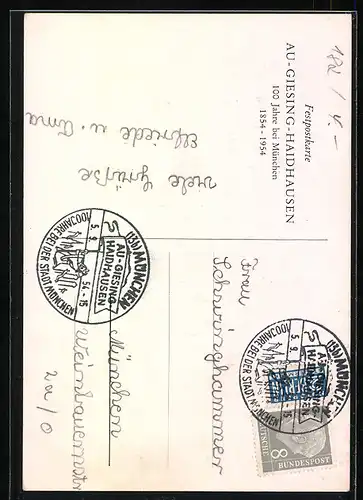 182 / 4.-
Festpostkarte
AU-GIESING-HAIDHAUSEN
100 Jahre bei München
1854-1954
viele Grüße
Elfriede u. Anna
(13b) MÜNCHEN
AU-GIESING-
HAIDHAUSEN
5. 9. 54.-15
100 JAHRE BEI DER STADT MÜNCHEN
(13b) MÜNCHEN
AU-GIESING-
HAIDHAUSEN
5. 9.
100 JAHRE BEI DER STADT MÜNCHEN
DEUTSCHE
BUNDESPOST
8
Frau
Schwinghammer
München
2a/0